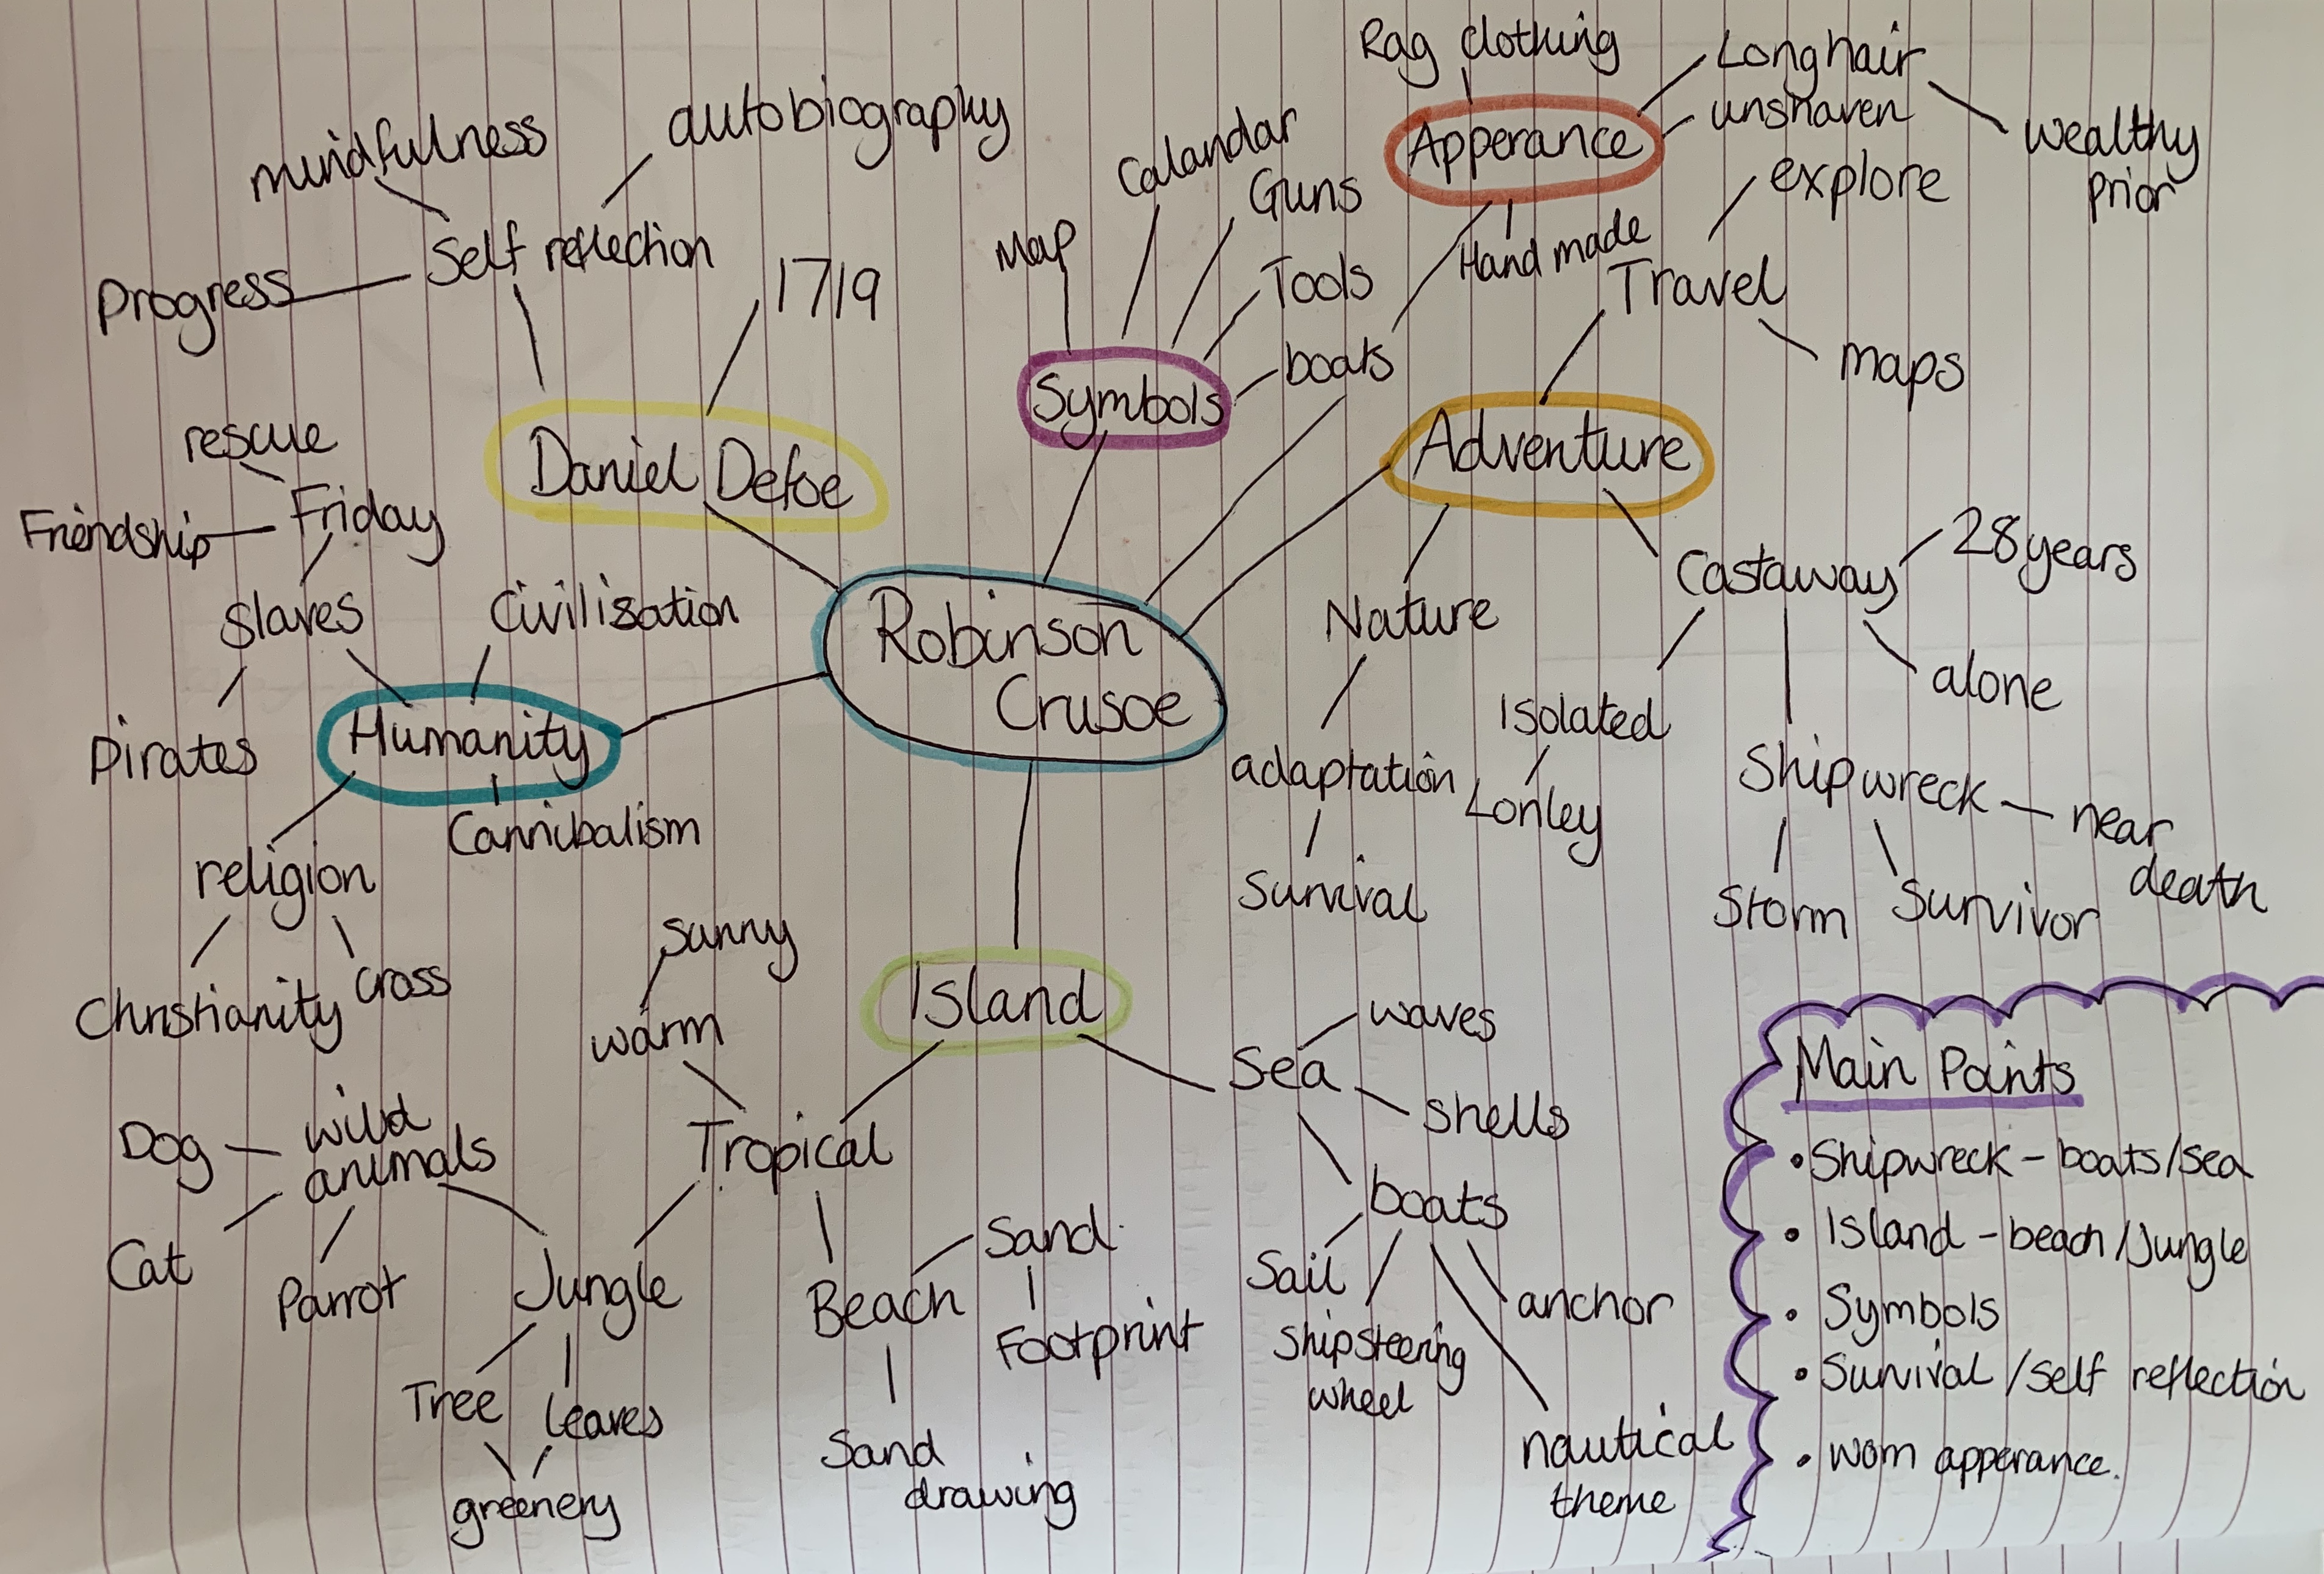 Rag clothing
Long hair
unshaven
Apperance
wealthy
prior
Hand made
explore
Travel
maps
autobiography
mindfulness
Self reflection
Progress
1719
Daniel Defoe
Calandar
Guns
Map
Tools
boats
Symbols
Adventure
rescue
Friendship
Friday
Slaves
Civilisation
Pirates
Humanity
Cannibalism
religion
Christianity
cross
Robinson
Crusoe
Nature
adaptation
Survival
Castaway
28 years
alone
Isolated
Lonley
Shipwreck
near
death
Storm
Survivor
Island
sunny
warm
Tropical
Dog
wild
animals
Cat
Parrot
Jungle
Tree
leaves
greenery
Beach
Sand
Footprint
Sand
drawing
Sea
waves
shells
boats
Sail
Ship steering
wheel
anchor
nautical
theme
Main Points
• Shipwreck - boats/sea
• Island - beach/Jungle
• Symbols
• Survival/self reflection
• worn apperance.